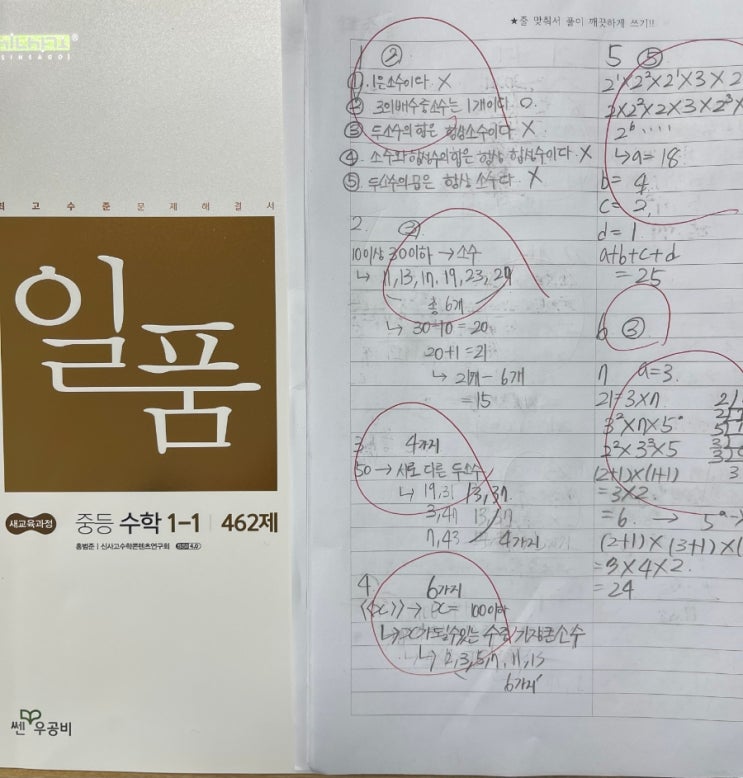 SINSAGO
최 고 수 준 문 제 해 결 서
일품
새교육과정 중등 수학 1-1 | 462제
홍범준 | 신사고수학콘텐츠연구회
쎈 우공비
★줄 맞춰서 풀이 깨끗하게 쓰기!!
1 ②
① 1은소수이다 X
② 3의배수중소수는 1개이다 O
③ 두소수의합은 합성소수이다 X
④ 소수와합성수의합은 항상 합성수이다 X
⑤ 두소수의곱은 항상 소수다 X
2.
10이상 30이하 → 소수
↳ 11, 13, 17, 19, 23, 29
총 6개
↳ 30-10 = 20
20+1 = 21
↳ 21개 - 6개
= 15
3 4가지
50 → 서로 다른 두소수
↳ 19,31 13,37
3,47 13,37
7,43 4가지
4 6가지
<<x>> → x = 100이하
↳ x가 될수있는 수중 가장큰소수
↳ 2,3,5,7,11,13
6가지
5 ⑤
2¹×2²×2¹×3×2
2×2²×2×3×2³×
↳ a=18
b= 4
c= 2,
d= 1
a+b+c+d
= 25
6 ③
n a=3.
21=3×7
3²×7×5
2²×3³×5
(2+1)×(1+1)
= 3×2
= 6. →
(2+1)×(3+1)×(
= 3×4×2
= 24